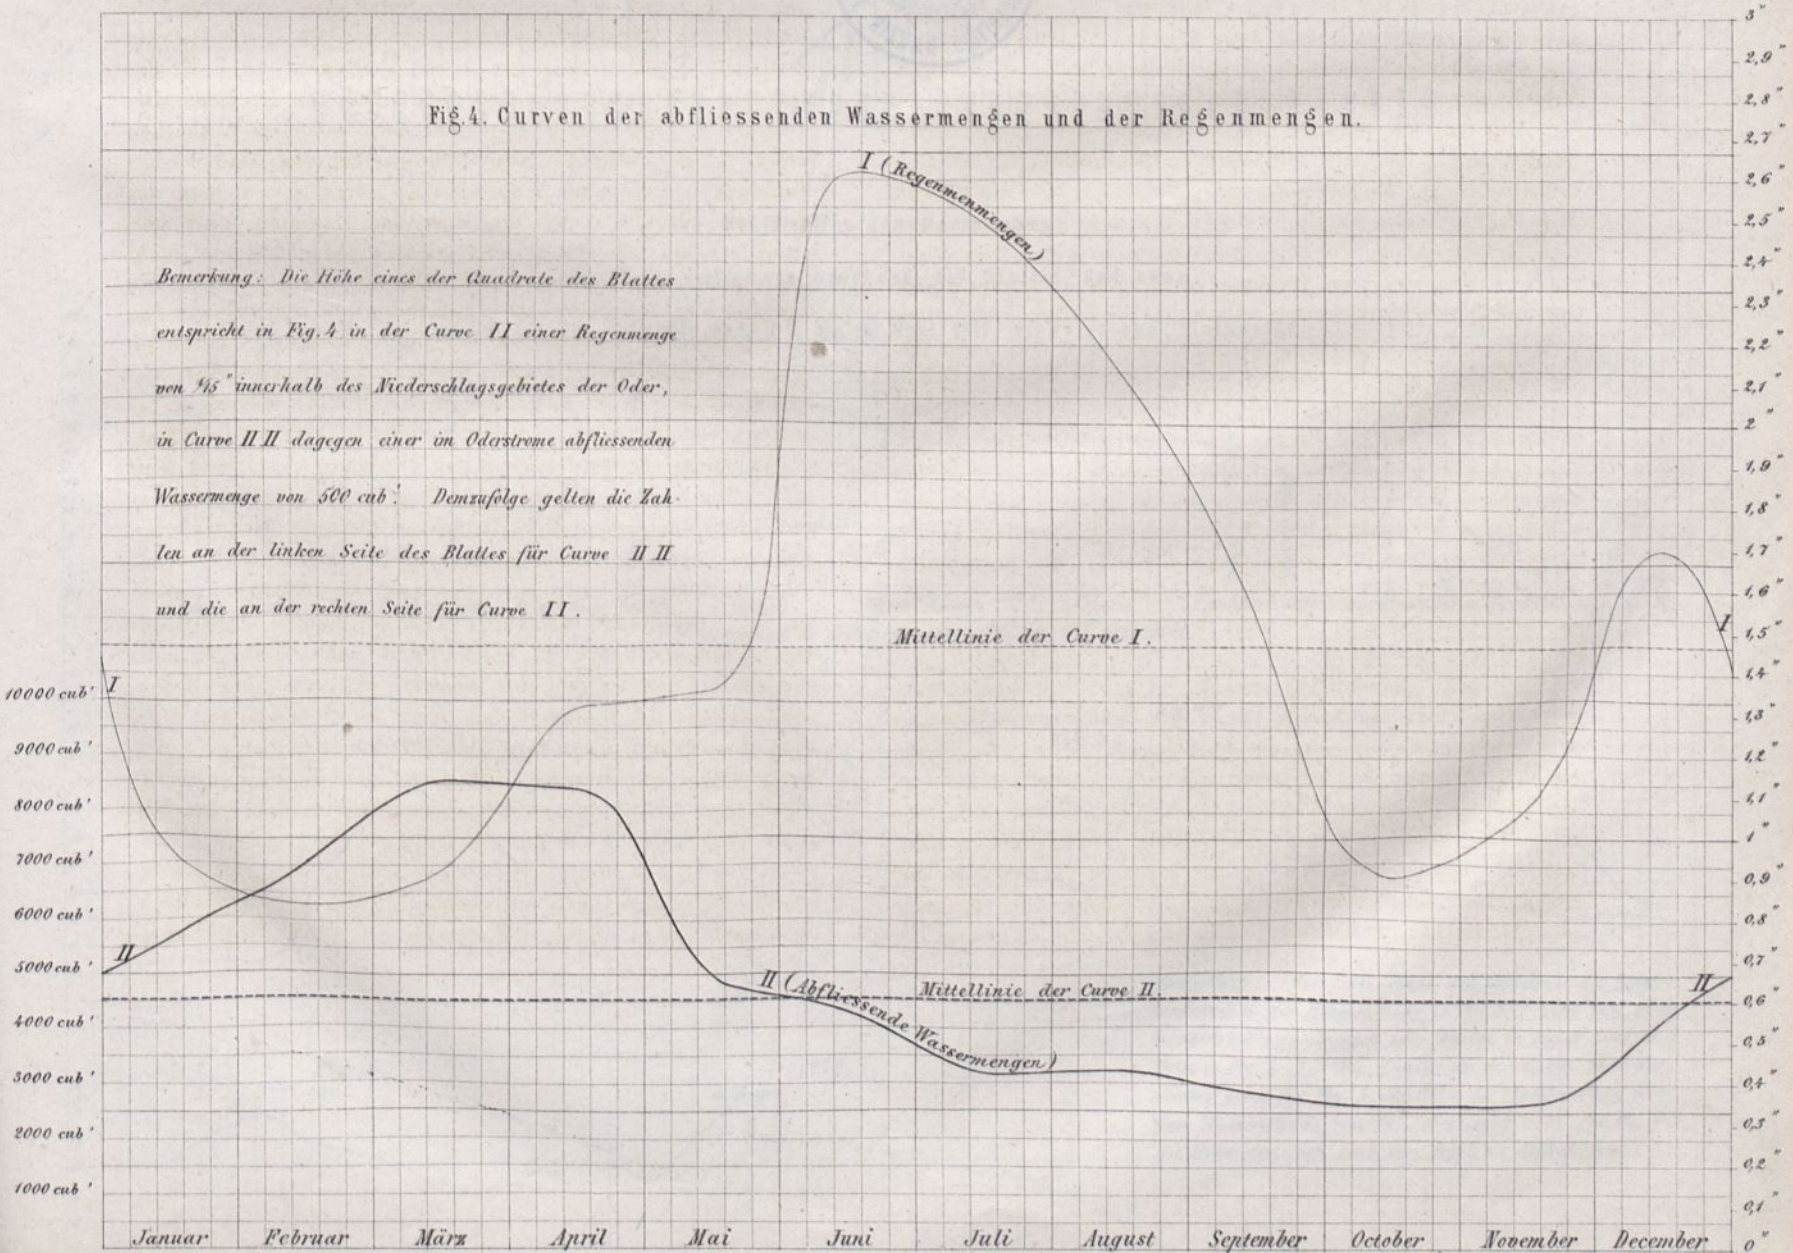 Fig. 4. Curven der abfliessenden Wassermengen und der Regenmengen.
I (Regenmenmengen)
Bemerkung: Die Höhe eines der Quadrate des Blattes
entspricht in Fig. 4 in der Curve II einer Regenmenge
von 1/15" innerhalb des Niederschlagsgebietes der Oder,
in Curve II II dagegen einer im Oderstrome abfliessenden
Wassermenge von 500 cub.' Demzufolge gelten die Zah-
len an der linken Seite des Blattes für Curve II II
und die an der rechten Seite für Curve II.
Mittellinie der Curve I.
I
I
II
II (Abfliessende Wassermengen)
Mittellinie der Curve II.
II
10000 cub'
9000 cub'
8000 cub'
7000 cub'
6000 cub'
5000 cub'
4000 cub'
3000 cub'
2000 cub'
1000 cub'
3"
2,9"
2,8"
2,7"
2,6"
2,5"
2,4"
2,3"
2,2"
2,1"
2"
1,9"
1,8"
1,7"
1,6"
1,5"
1,4"
1,3"
1,2"
1,1"
1"
0,9"
0,8"
0,7"
0,6"
0,5"
0,4"
0,3"
0,2"
0,1"
0"
Januar Februar März April Mai Juni Juli August September October November December